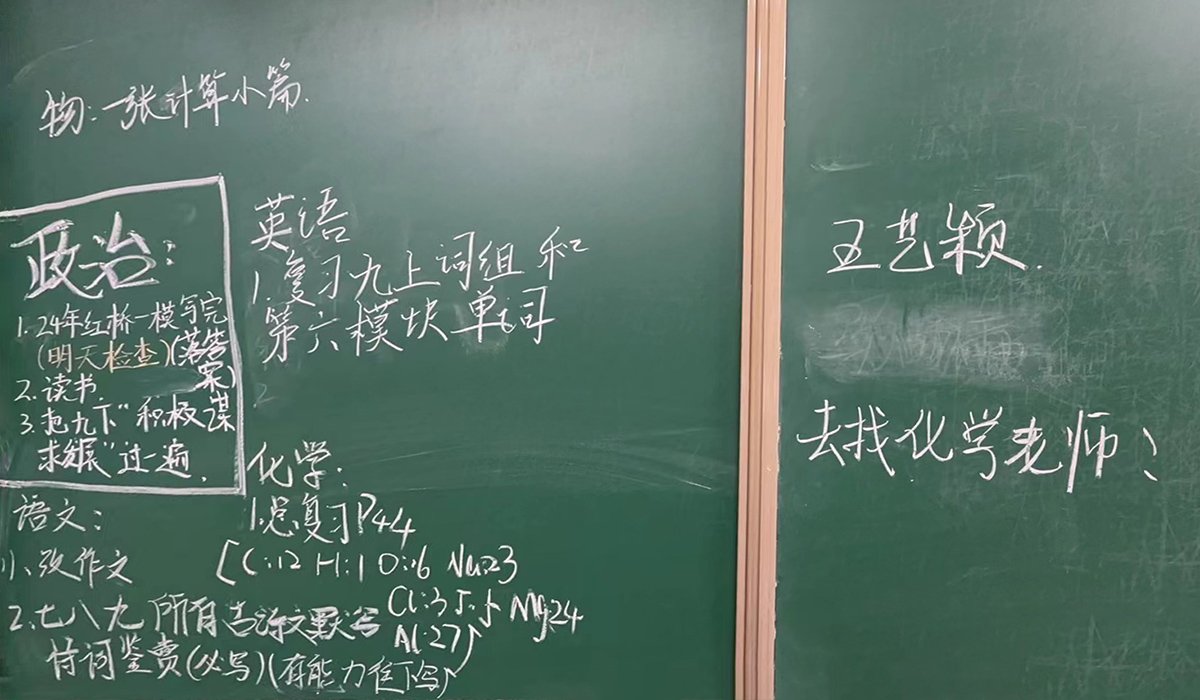 物:一张计算小篇.
政治:
1.24年红桥一模写完
(明天检查)(落答案)
2.读书.
3.把九下"积极谋
求发展"过一遍.
英语
1.复习九上词组和
第六模块单词
2
化学:
1.总复习P44
[C:12 H:1 O:16 Na:23
Cl:35.5 Mg:24
Al:27]
语文:
1、改作文
2.七八九所有古诗文默写
诗词鉴赏(必写)(有能力往下写)
王艺颖.
去找化学老师!